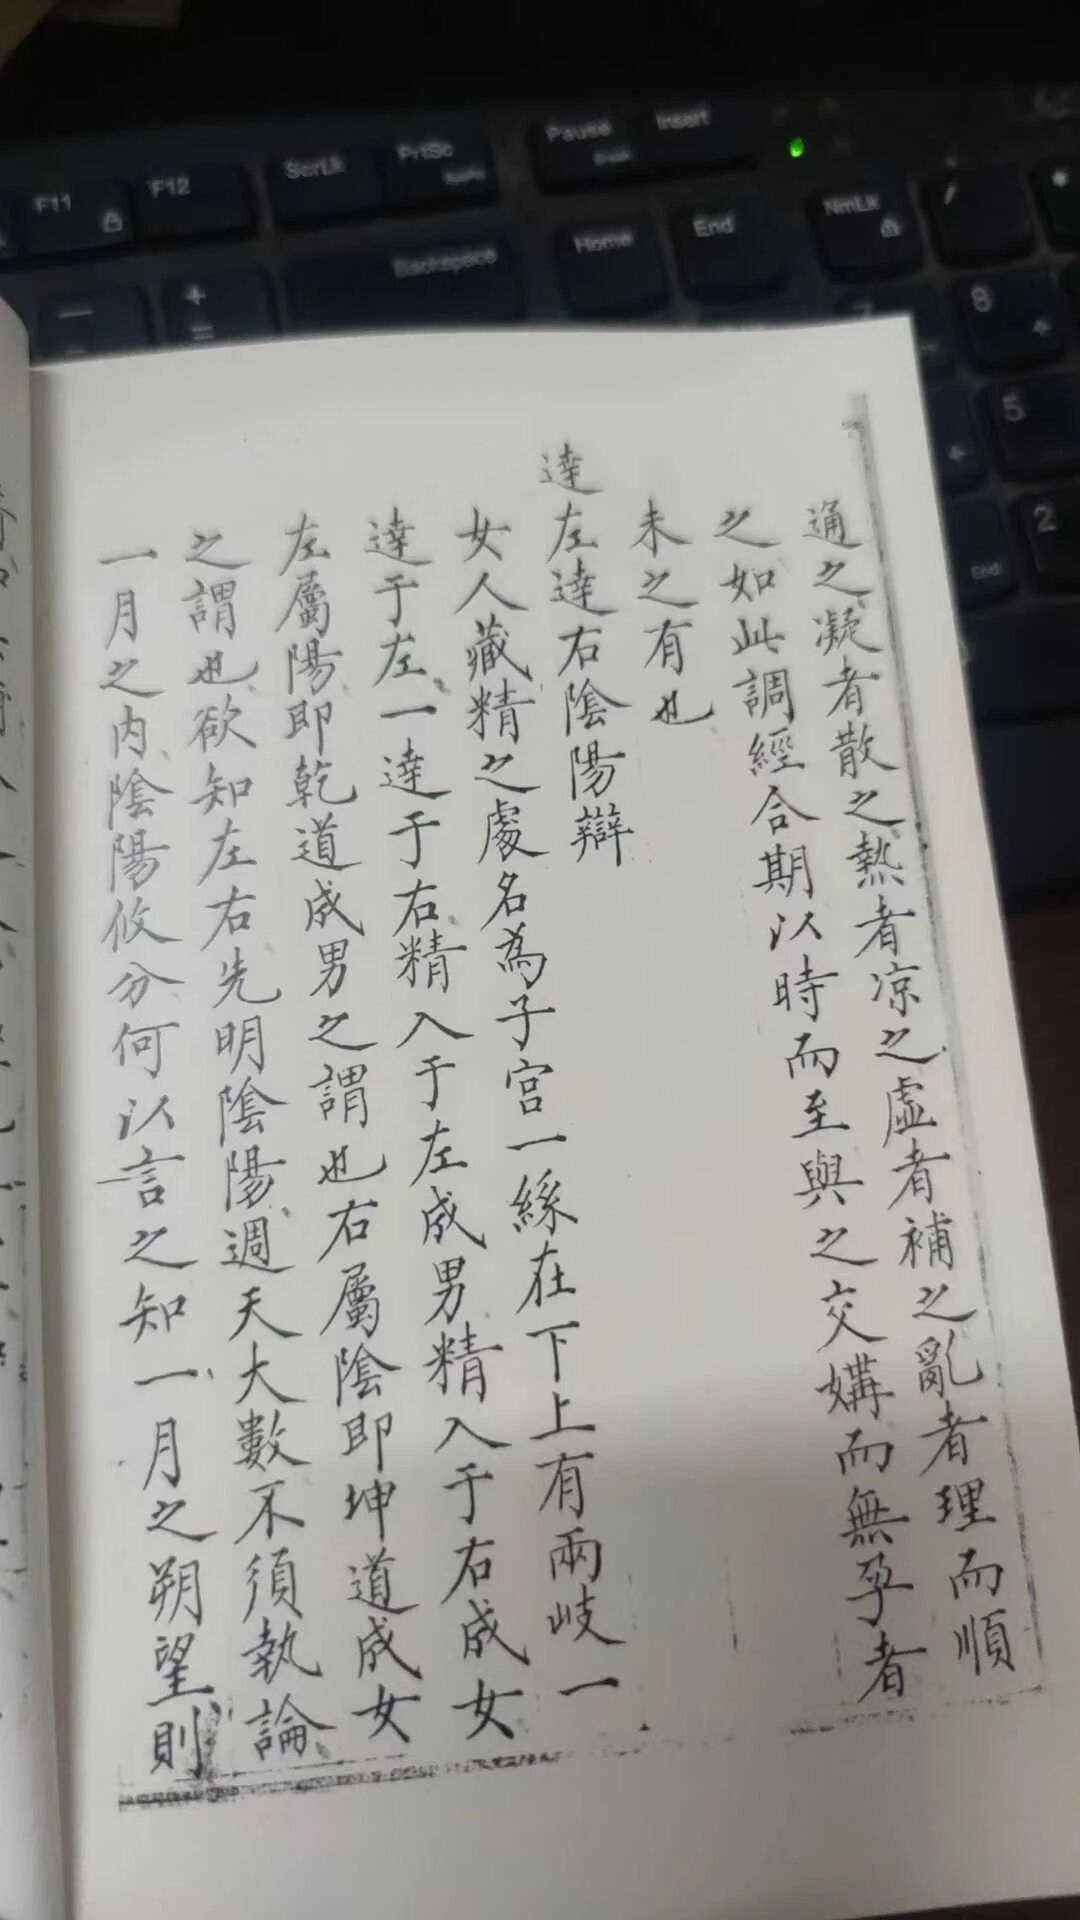 通之凝者散之熱者凉之虛者補之亂者理而順
之如此調經合期以時而至與之交媾而無孕者
未之有也
逹左逹右陰陽辯
女人藏精之處名為子宫一絲在下上有兩岐一
逹于左一逹于右精入于左成男精入于右成女
左屬陽即乾道成男之謂也右屬陰即坤道成女
之謂也欲知左右先明陰陽週天大數不須執論
一月之内陰陽攸分何以言之知一月之朔望則
F11
F12
ScrLk
PrtSc
Pause
Insert
Backspace
Home
End
NmLk
8
5
2
End